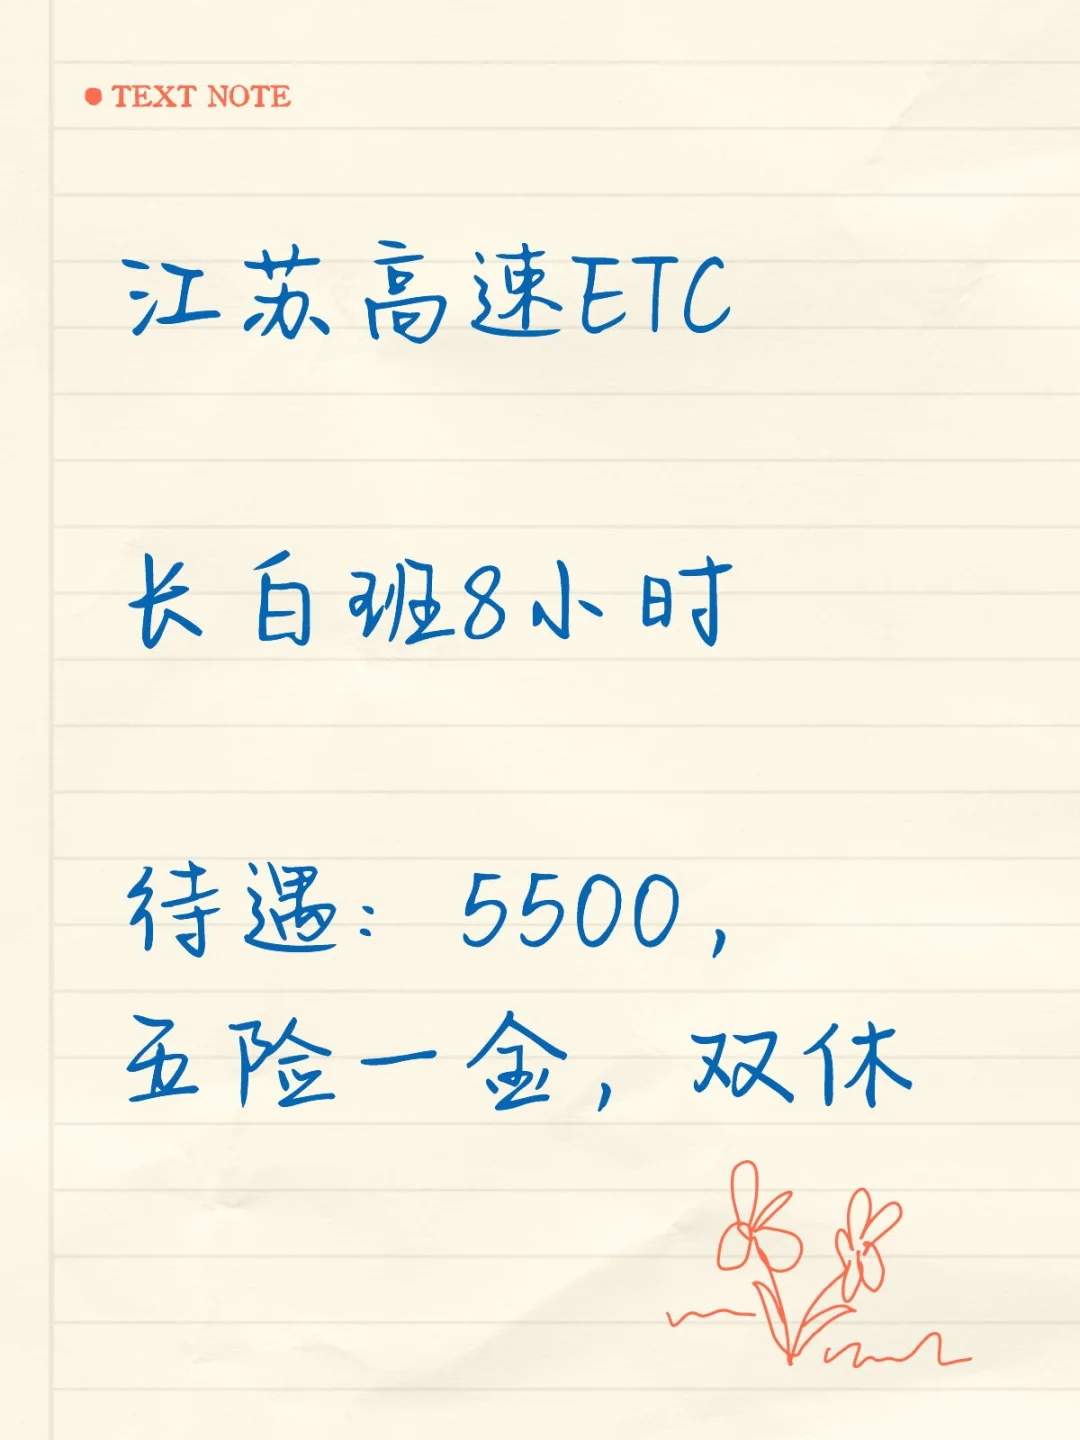 TEXT NOTE
江苏高速ETC
长白班8小时
待遇：5500，
五险一金，双休